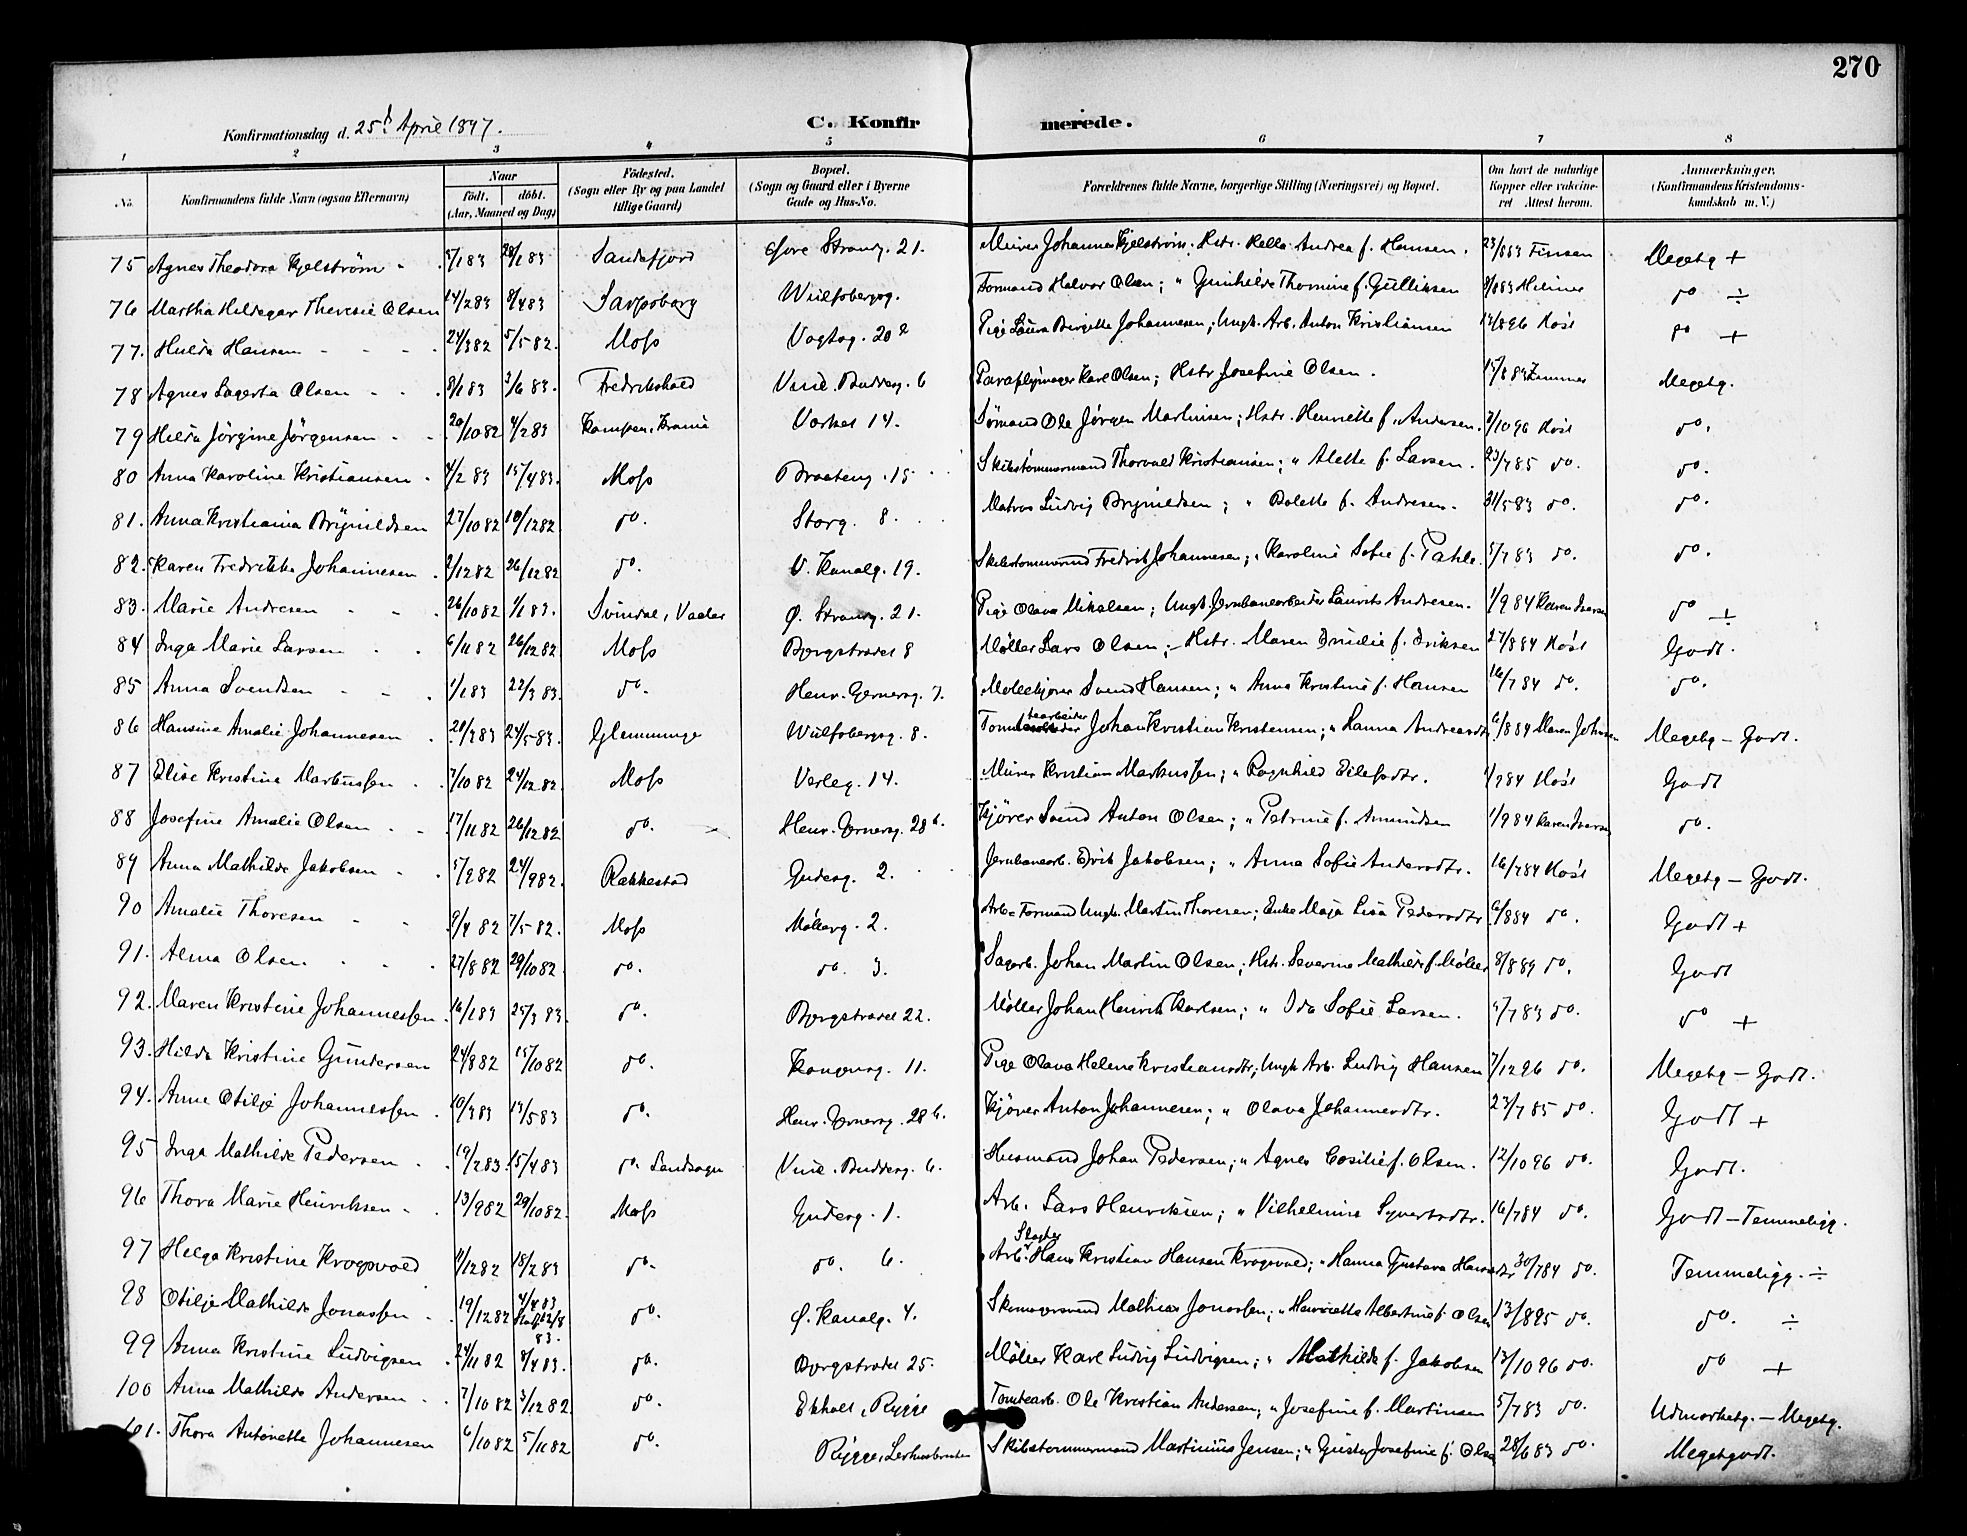 270
Konfirmationsdag d. 25d April 1897.
C. Konfirmerede.
1 2 3 4 5 6 7 8
No. Konfirmandens fulde Navn (ogsaa Efternavn) Naar født. døbt. (Aar, Maaned og Dag) Fødested. (Sogn eller By og paa Landet tillige Gaard) Bopæl. (Sogn og Gaard eller i Byerne Gade og Hus-No. Forældrenes fulde Navne, borgerlige Stilling (Næringsvei) og Bopæl. Om havt de naturlige Kopper eller vaccineret Attest herom. Anmærkninger. (Konfirmandens Kristendomskundskab m. V.)
75 Agnes Theodora Kjelström - 28/1 83 Sandefjord Øvre Strandg. 21. Murer Johannes Kjelström. Hstr. Andrea f. Hansen. 23/8 83 Finsen Megetg +
76 Martha Hildegar Theresie Olsen 14/2 83 8/4 83 Sarpsborg Wulfsbergsg. Formand Halvor Olsen; " Gunhilde Thomine f. Gulliksen 8/8 83 do ÷
77. Hulda Hansen - - - 24/3 82 5/5 82. Moss Vogtsg. 20 Pige Laura Birgitte Johannesen; Ungk. Arb. Anton Kristiansen 14/8 96 Höst do +
78 Agnes Lagerta Olsen - - 8/1 83 3/6 83. Fredrikshald Vincl. Buddesg. 6 Paraplymager Karl Olsen; Hstr Josefine Olsen. 15/8 84 Zimmer Megetg.
79 Hilda Jörgine Jörgensen - - 20/10 82 4/2 83 Kampen, Krania Vorket 14. Sömand Ole Jörgen Martinsen; Hstr. Henriette f. Andersen. 7/10 96 Höst do.
80 Anna Karoline Kristiansen - 4/2 83 15/4 83. Moss Braateng. 15 Skibstömmermand Thorvald Kristiansen; " Alette f. Larsen. 23/7 85 do. do.
81. Anna Kristiania Brynildsen 27/10 82 10/12 82. do. Storg. 8. Matros Ludvig Brynildsen; " Bolette f. Andresen. 31/5 83 do. do.
82. Karen Fredrikke Johannesen. 2/12 82 26/12 82 do. V. Kanalg. 19. Skibstømmermand Fredrik Johannesen; " Karoline Sofie f. Pahle. 5/7 83 do. do.
83. Marie Andresen - - 26/10 82 1/1 83. Svindal, Vaaler Ø. Strandg. 21. Pige Olava Mikalsen; Ungk. Jernbanearbeider Laurits Andresen. 1/9 84 Karen Iversen do ÷
84 Inga Marie Larsen - - 6/11 82 26/12 82 Moss Bergstrædet 8 Møller Lars Olsen; - Hstr. Maren Emilie f. Eriksen 27/8 84 Höst Godt.
85 Anna Svendsen - - - 1/1 83 22/3 83. do. Henr. Gernersg. 7. Mølekjører Svend Hansen; " Anna Kristine f. Hansen 16/7 84 do. do.
86 Hansine Amalie Johannesen - 21/3 83 24/5 83. Glemminge Wulfsbergsg. 8. Tomtearbeider Johan Kristian Kristensen; " Hanna Andreasdtr. 6/8 84 Maren Johnsen Megetg - Godt.
87 Elise Kristine Markussen - 7/10 82 24/12 82. Moss Verleg. 14. Murer Kristian Markussen; " Ragnhild Eilefsdtr. Höst Godt
88 Josefine Amalie Olsen - - 17/11 82 26/12 82 do. Henr. Gernersg. 28 b. Kjører Svend Anton Olsen; " Petrine f. Amundsen 1/9 84 Karen Iversen do.
89 Anna Mathilde Jakobsen - - 5/9 82 24/9 82. Rakkestad Gudesg. 2. Jernbanearb. Erik Jakobsen; " Anna Sofie Andersdtr. 16/7 84 Höst Megetg - Godt.
90 Amalie Thoresen - - 9/4 82 7/5 82. Moss Møllerg. 2. Arb.-Formand Ungk. Martin Thoresen; Enke Maja Lisa Pedersdtr. 6/8 84 do. Godt +
91. Alma Olsen - - - 27/8 82 29/10 82. do. do. 3. Sagarb. Johan Martin Olsen; Hstr. Severine Mathilde f. Møller 8/8 89 do. Godt
92. Maren Kristine Johannessen. 16/1 83 25/3 83. do. Bergstrædet 22. Møller Johan Henrik Karlsen; " Ida Sofie Larsen. 5/7 83 do. do +
93. Hilda Kristine Gundersen 24/8 82 15/10 82 do. Kongensg. 11. Pige Olava Helene Kristiansdtr; Ungk Arb. Ludvig Hansen 7/12 96 do. Megetg - Godt.
94. Anne Otilje Johannessen. 10/3 83 13/5 83 do. Henr. Gernersg. 28 b. Kjører Anton Johannesen; " Olava Johannesdtr. 23/7 85 do. Godt +
95 Inga Mathilde Pedersen - 19/2 83. 15/4 83 do. Landsogn Vincl. Buddesg. 6. Husmand Johan Pedersen; " Agnes Cosilie f. Olsen. 12/10 96 do. Godt.
96 Thora Marie Henriksen - 13/9 82 29/10 82. Moss Gudesg. 1. Arb. Lars Henriksen; " Vilhelmine Syvertsdtr. 16/7 84 do. Godt - Temmeligg.
97 Helga Kristine Krogsvold 11/12 82 18/2 83 do. do. 6. Arb. Hans Kristian Hansen Krogsvold; " Hanna Gustava Hansdtr 30/7 84 do. Temmeligg. ÷
98 Otilje Mathilde Jonassen - 19/12 82 4/4 83 12/8 83. do. Ø. Kanalg. 4. Skomagersvend Mathias Jonassen; " Henriette Albertine f. Olsen 13/8 95 do. do. ÷
99 Anna Kristine Ludvigsen 24/11 82 8/4 83. do. Bergstrædet 25. Møller Karl Ludvig Ludvigsen; " Mathilde f. Jakobsen 13/10 96 do. do +
100 Anna Mathilde Andersen - 7/10 82 3/12 82. do. Ekholt, Rygge Tomtearb. Ole Kristian Andersen; " Josefine f. Martinsen 5/7 83 do. Udmærketg. - Megetg.
101. Thora Antonette Johannesen 6/10 82 5/11 82 do. Rygge, Skibstømmermand Martinius Jensen; " Gusta Josefine f. Olsen 28/6 83 do. Megetgodt.